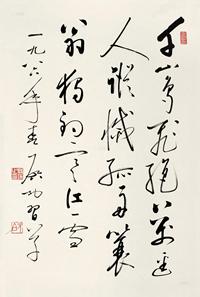 千山鸟飞绝万径
人踪灭孤舟蓑
翁独钓寒江雪
一九八六年春启功习草